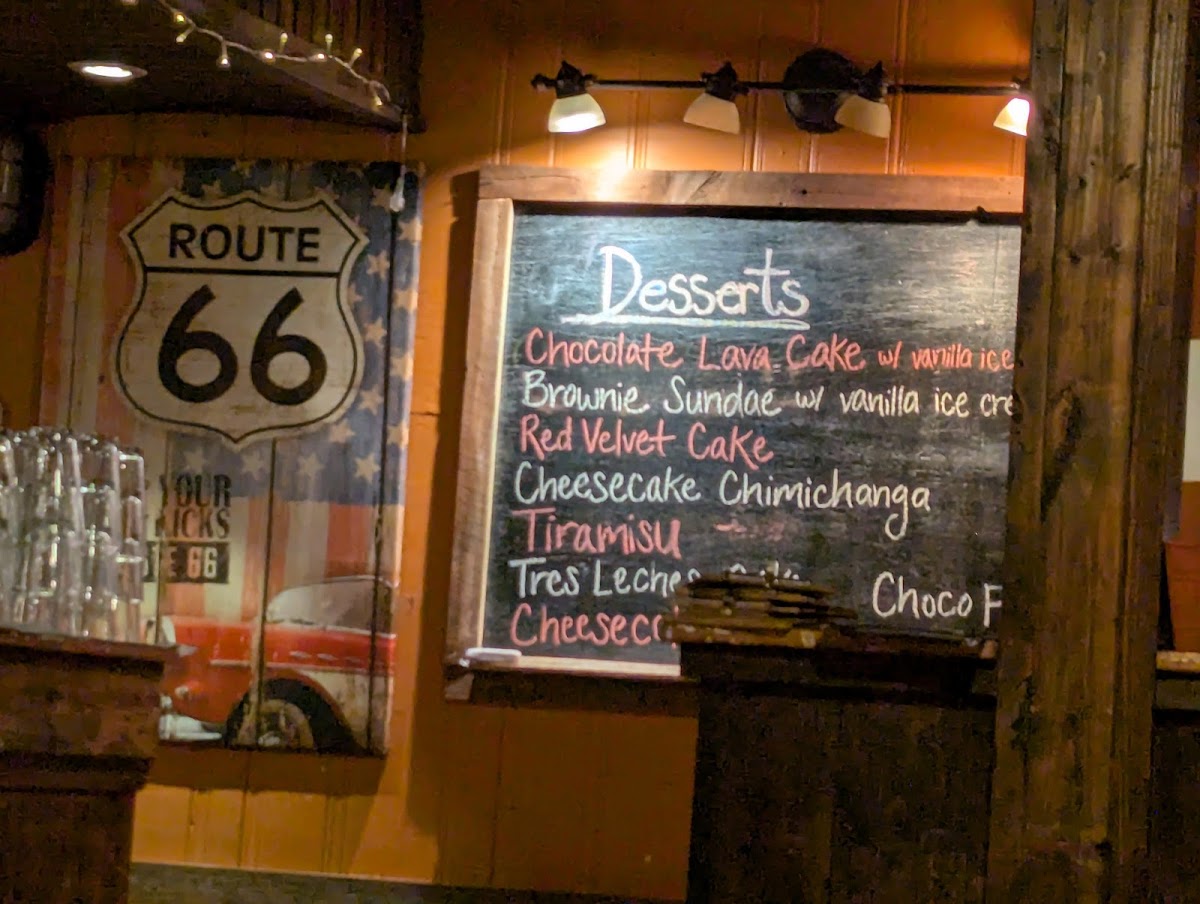 ROUTE
66
YOUR
KICKS
66
Desserts
Chocolate Lava Cake w/ vanilla ice
Brownie Sundae w/ vanilla ice cre
Red Velvet Cake
Cheesecake Chimichanga
Tiramisu
Tres Leches
Choco F
Cheeseca